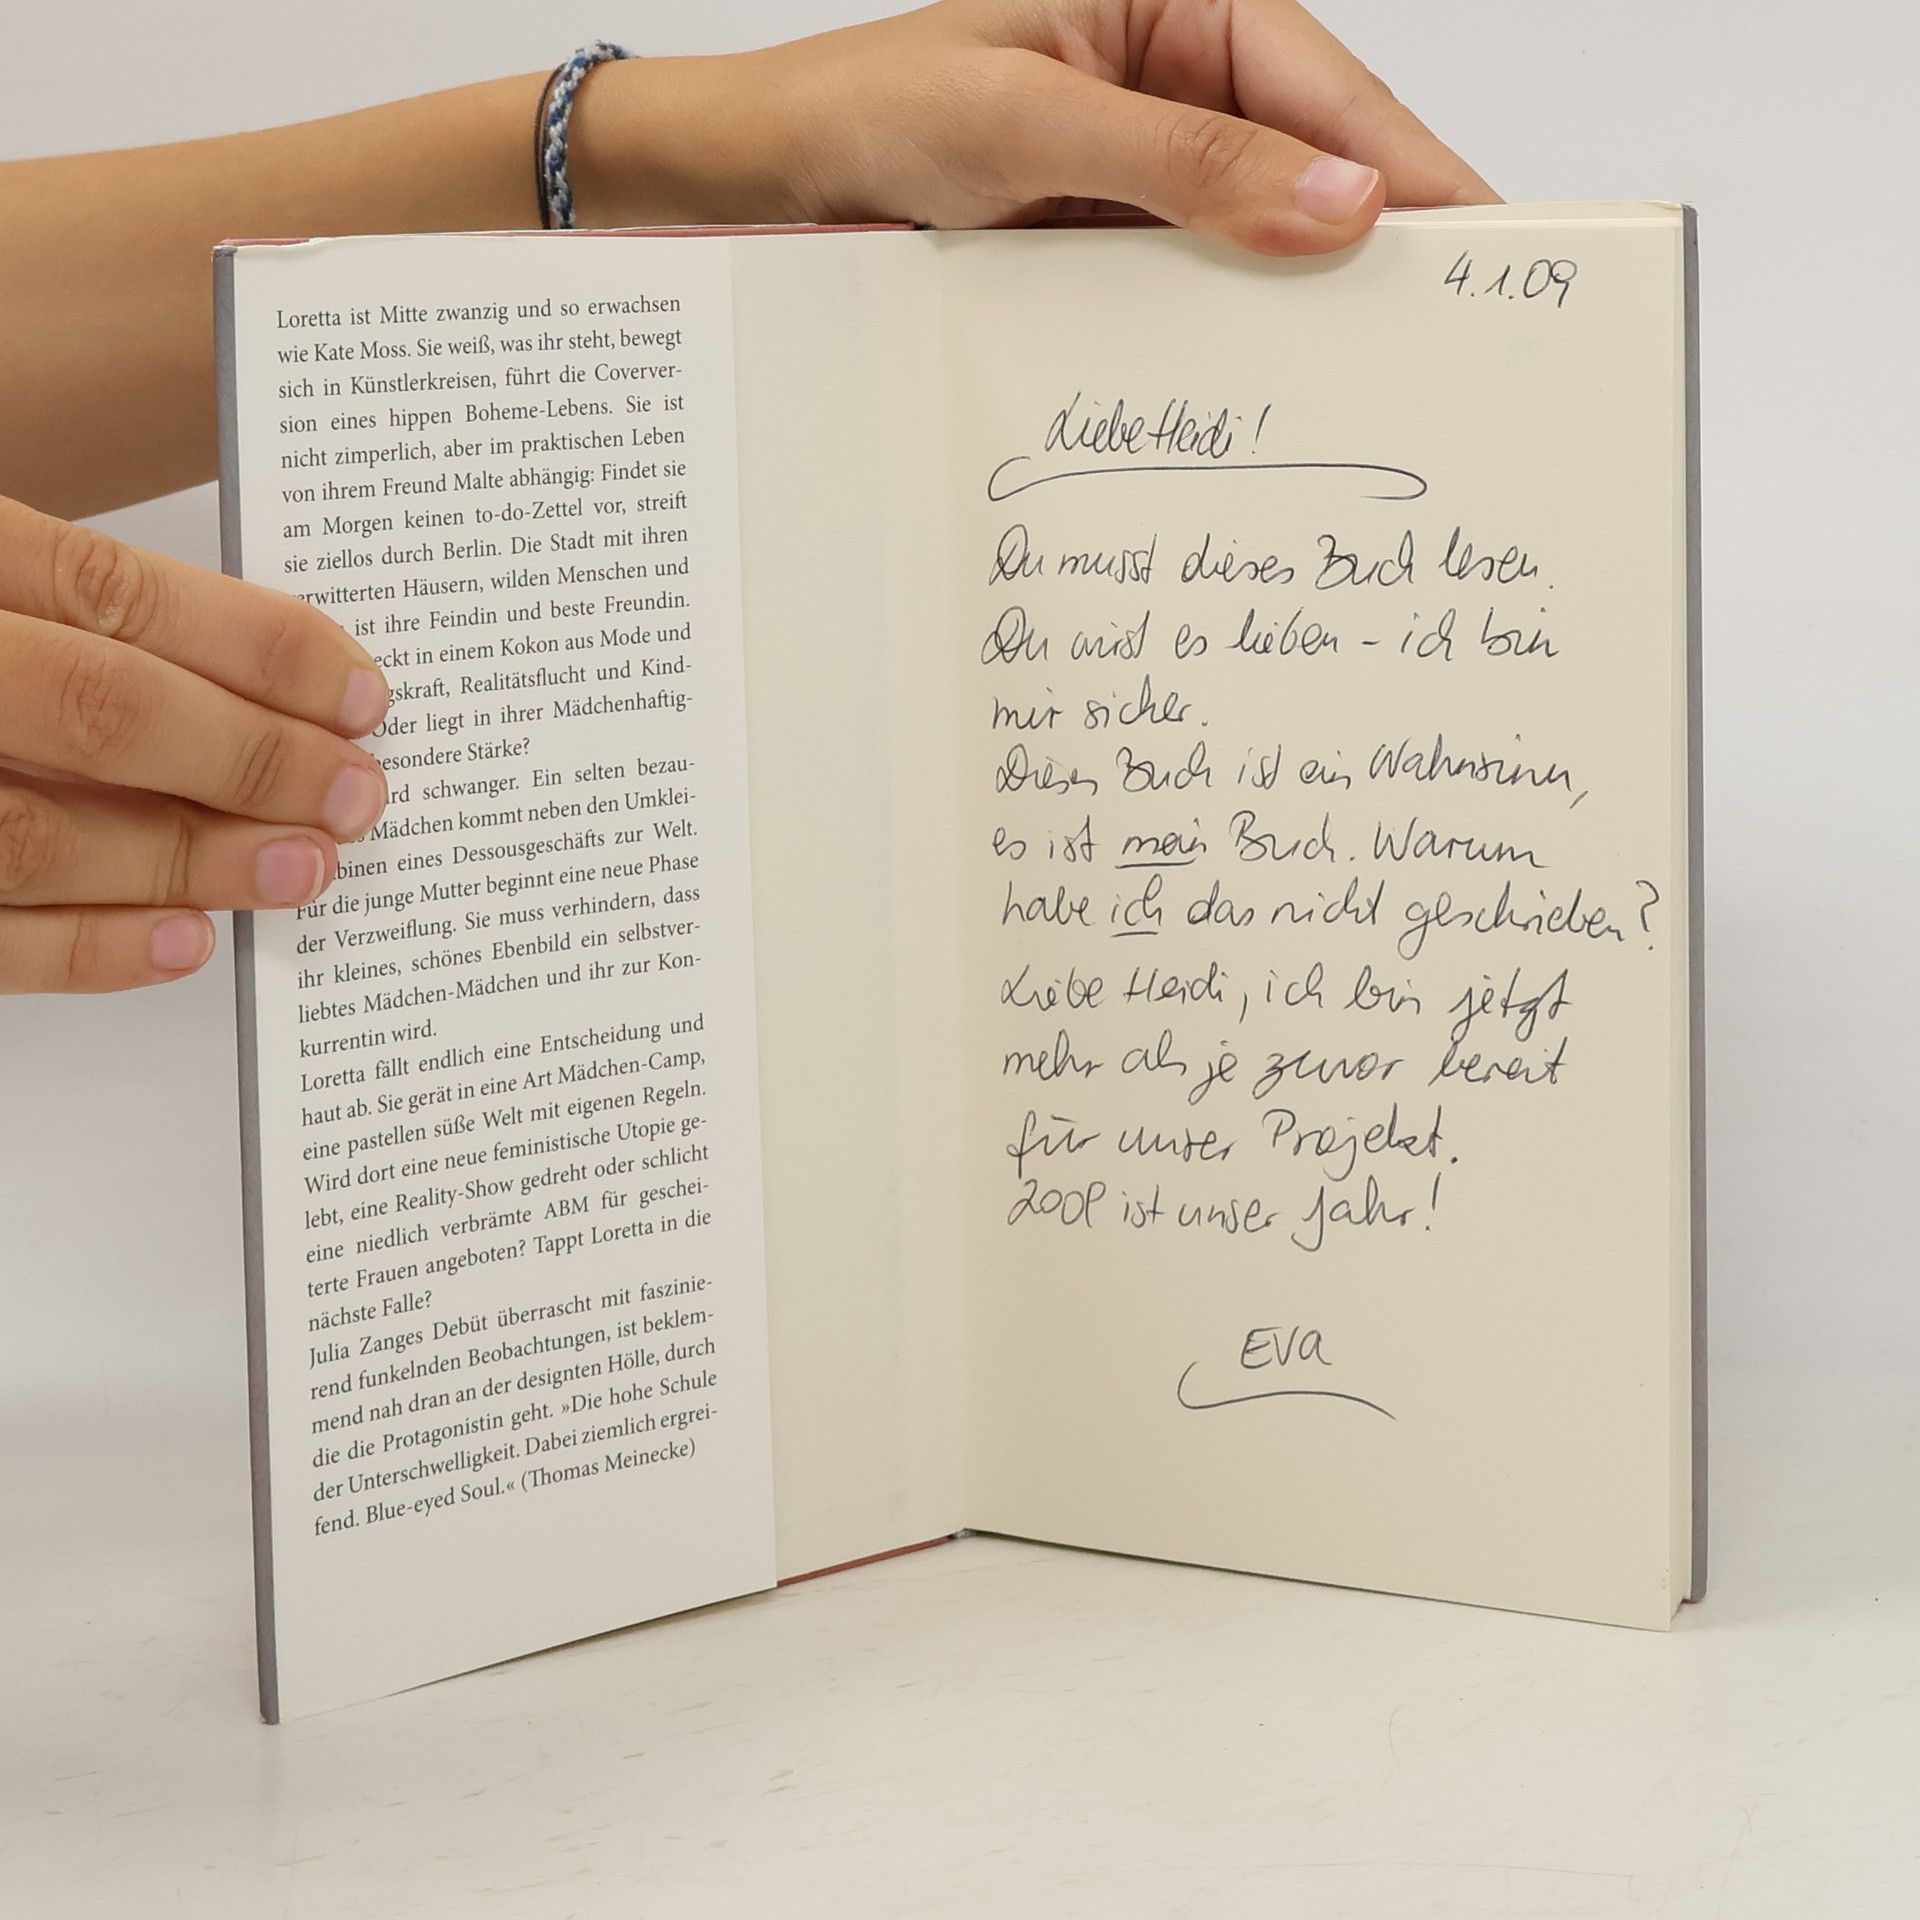 Loretta ist Mitte zwanzig und so erwachsen
wie Kate Moss. Sie weiß, was ihr steht, bewegt
sich in Künstlerkreisen, führt die Coverver-
sion eines hippen Boheme-Lebens. Sie ist
nicht zimperlich, aber im praktischen Leben
von ihrem Freund Malte abhängig: Findet sie
am Morgen keinen to-do-Zettel vor, streift
sie ziellos durch Berlin. Die Stadt mit ihren
erwitterten Häusern, wilden Menschen und
ist ihre Feindin und beste Freundin.
eckt in einem Kokon aus Mode und
gskraft, Realitätsflucht und Kind-
Oder liegt in ihrer Mädchenhaftig-
esondere Stärke?
ird schwanger. Ein selten bezau-
Mädchen kommt neben den Umklei-
binen eines Dessousgeschäfts zur Welt.
Für die junge Mutter beginnt eine neue Phase
der Verzweiflung. Sie muss verhindern, dass
ihr kleines, schönes Ebenbild ein selbstver-
liebtes Mädchen-Mädchen und ihr zur Kon-
kurrentin wird.
Loretta fällt endlich eine Entscheidung und
haut ab. Sie gerät in eine Art Mädchen-Camp,
eine pastellen süße Welt mit eigenen Regeln.
Wird dort eine neue feministische Utopie ge-
lebt, eine Reality-Show gedreht oder schlicht
eine niedlich verbrämte ABM für geschei-
terte Frauen angeboten? Tappt Loretta in die
nächste Falle?
Julia Zanges Debüt überrascht mit faszinie-
rend funkelnden Beobachtungen, ist beklem-
mend nah dran an der designten Hölle, durch
die die Protagonistin geht. »Die hohe Schule
der Unterschwelligkeit. Dabei ziemlich ergrei-
fend. Blue-eyed Soul.« (Thomas Meinecke)
4.1.09
Liebe Heidi!
Du musst dieses Buch lesen.
Du wirst es lieben - ich bin
mir sicher.
Dieses Buch ist ein Wahnsinn,
es ist mein Buch. Warum
habe ich das nicht geschrieben?
Liebe Heidi, ich bin jetzt
mehr als je zuvor bereit
für unser Projekt.
2009 ist unser Jahr!
EVA